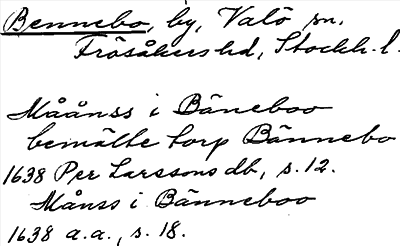 Bennebo, by, Valö sn.
Frösåkers hd, Stockh. l.
Måånss i Bäneboo
bemälte torp Bännebo
1638 Per Larssons db, s. 12.
Månss i Bänneboo
1638 a.a., s. 18.